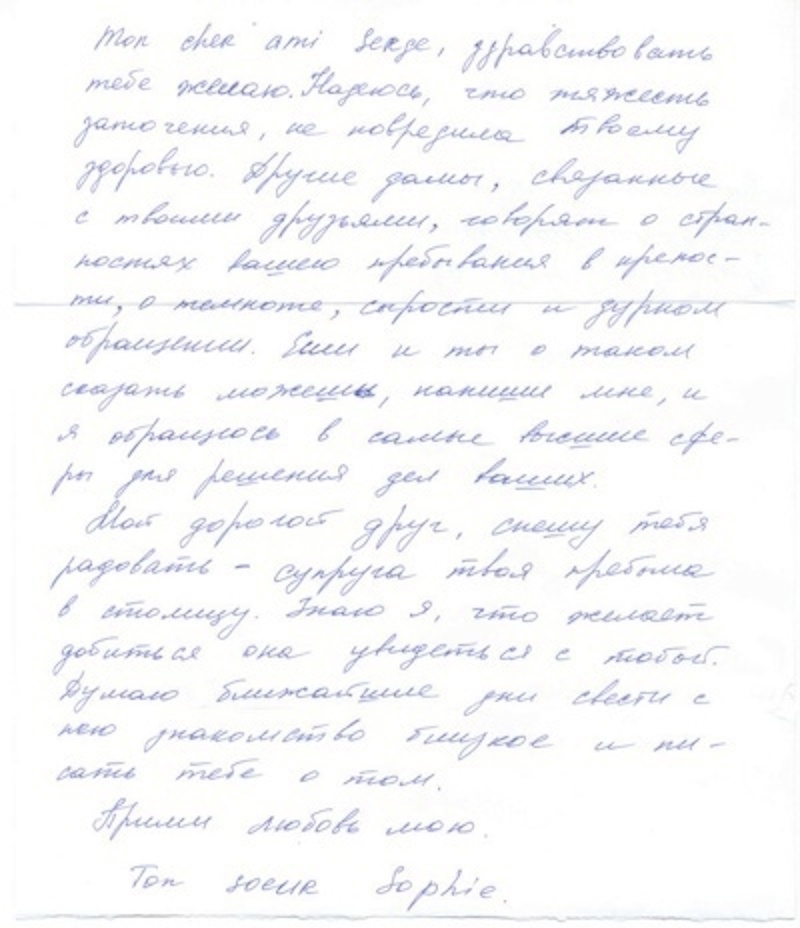 Mon cher ami Serge, здравствовать
тебе желаю. Надеюсь, что тяжесть
заточения, не повредила твоему
здоровью. Другие дамы, связанные
с твоими друзьями, говорят о стран-
ностях вашего пребывания в крепос-
ти, о темноте, сырости и дурном
обращении. Если и ты о таком
сказать можешь, напиши мне, и
я обращусь в самые высшие сфе-
ры для решения дел ваших.
Мой дорогой друг, спешу тебя
радовать - супруга твоя прибыла
в столицу. Знаю я, что желает
добиться она увидеться с тобой.
Думаю ближайшие дни свести с
нею знакомство близкое и пи-
сать тебе о том.
Прими любовь мою.
Ton soeur Sophie.